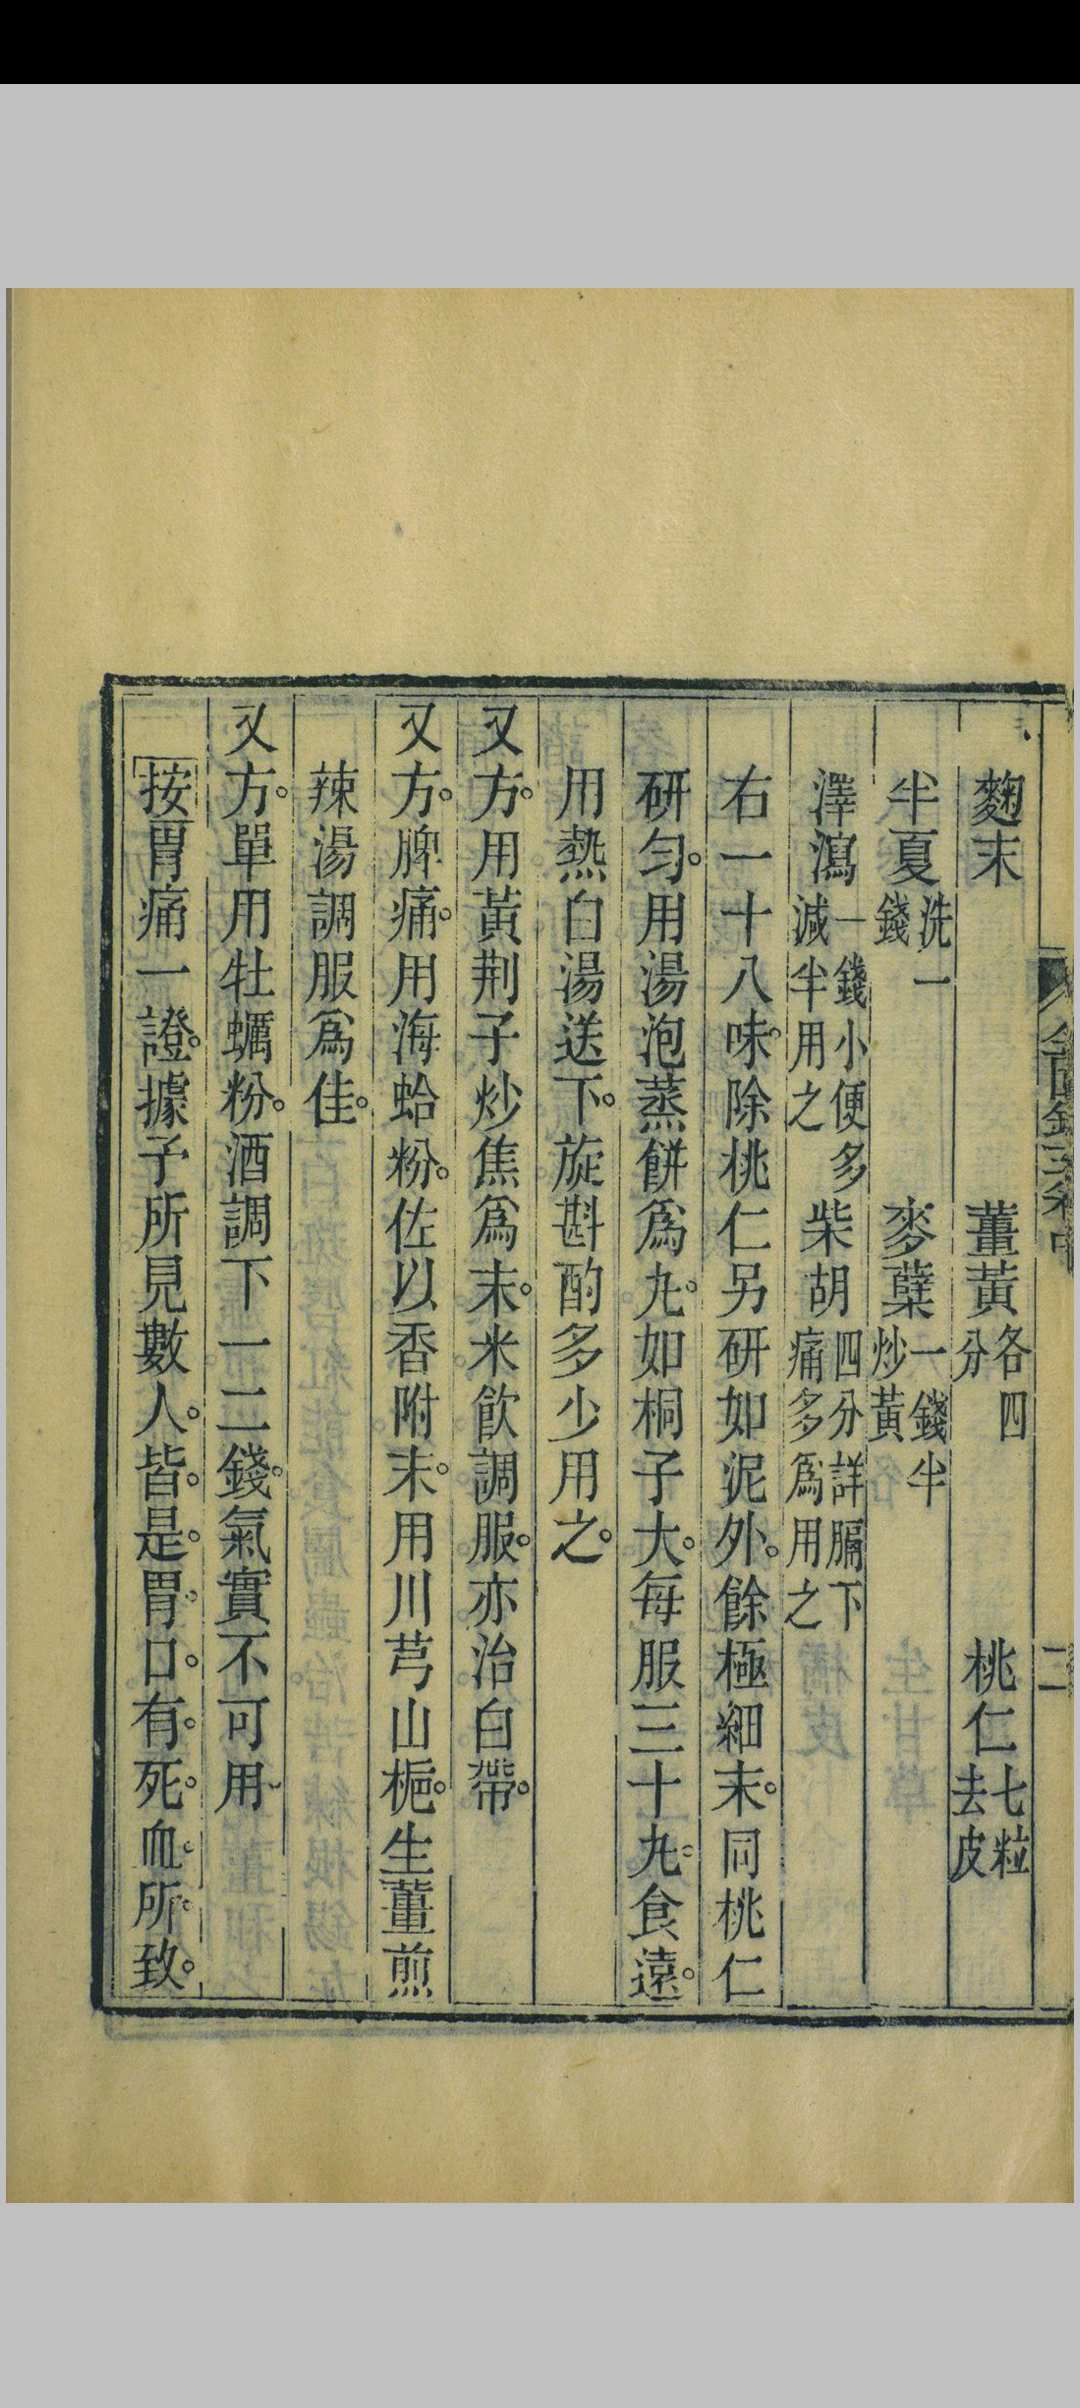 麴末　薑黃各四分　桃仁七粒去皮
半夏洗一錢　麥蘖一錢半炒黃
澤瀉一錢小便多減半用之　柴胡四分詳膈下痛多爲用之
右一十八味除桃仁另研如泥外。餘極細末。同桃仁
研勻。用湯泡蒸餅爲丸。如桐子大。每服三十丸食遠。
用熱白湯送下。旋斟酌多少用之。
又方。用黃荆子炒焦爲末。米飲調服。亦治白帶。
又方。脾痛。用海蛤粉。佐以香附末。用川芎山梔。生薑煎
辣湯調服爲佳。
又方。單用牡蠣粉。酒調下一二錢。氣實不可用
按胃痛一證。據予所見數人。皆。是。胃。口。有。死。血。所。致。
二